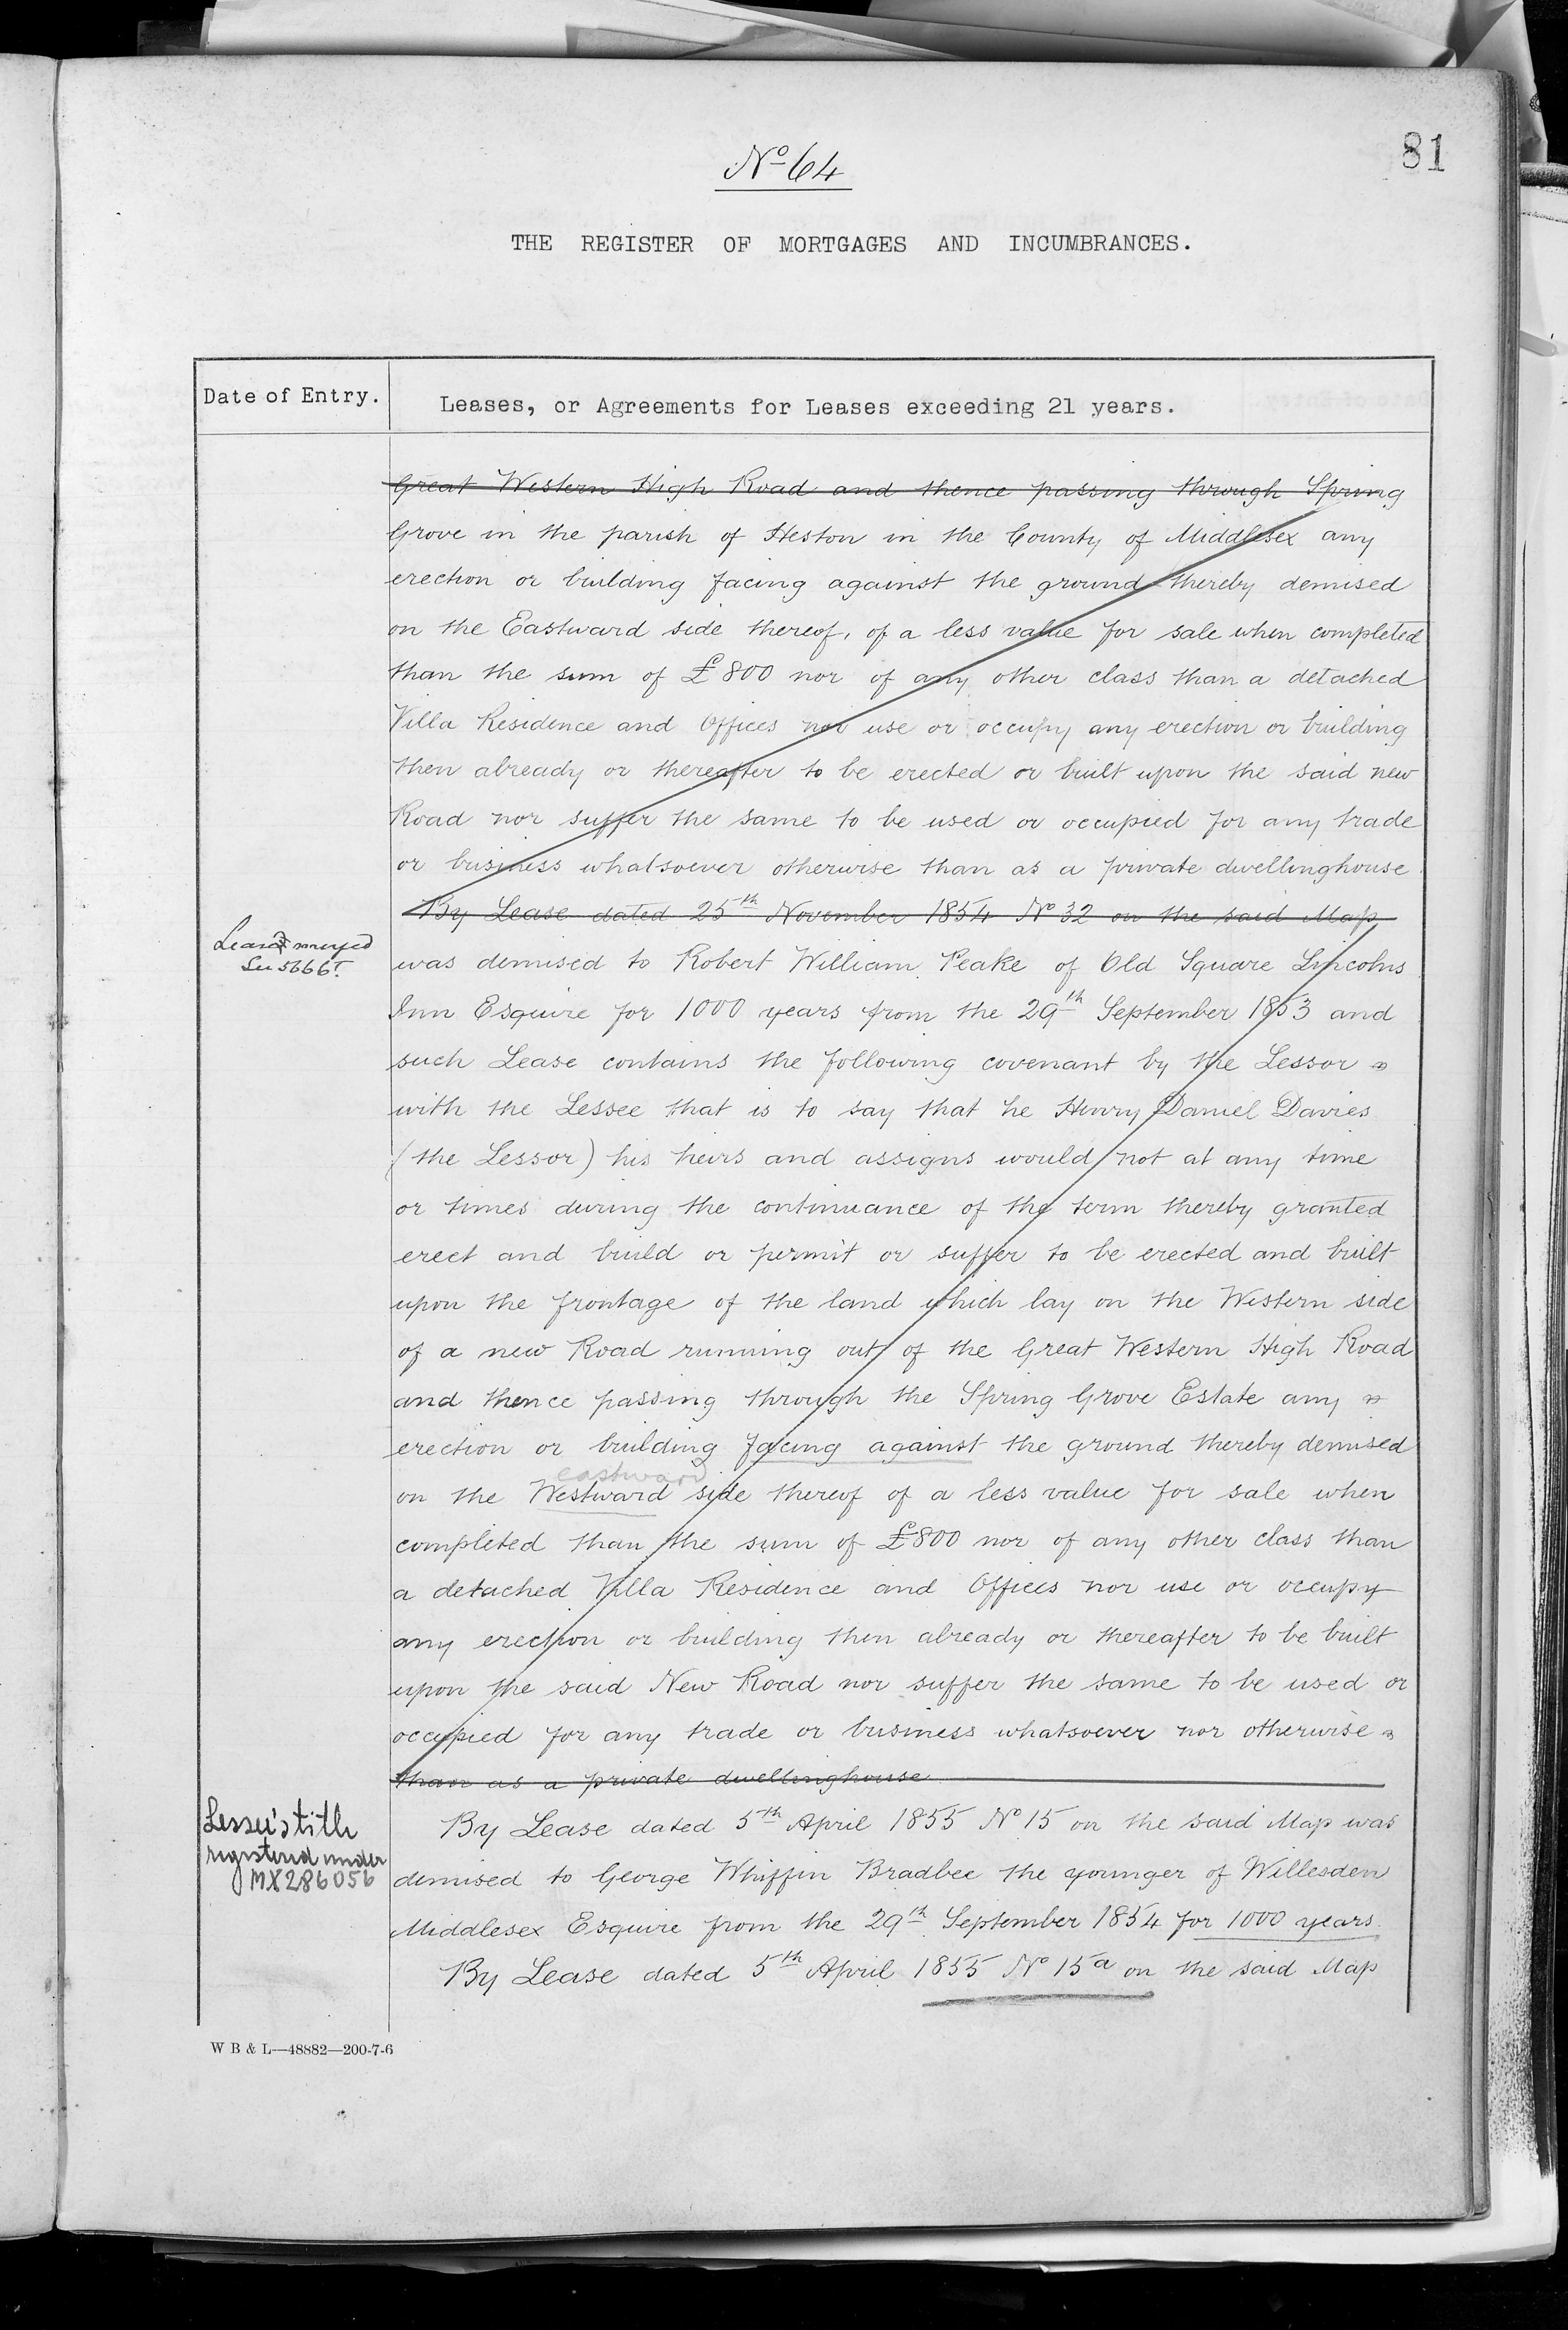 81
No 64
THE REGISTER OF MORTGAGES AND INCUMBRANCES.
Date of Entry.
Leases, or Agreements for Leases exceeding 21 years.
Great Western High Road and thence passing through Spring
Grove in the parish of Heston in the County of Middlesex any
erection or building facing against the ground thereby demised
on the Eastward side thereof, of a less value for sale when completed
than the sum of £800 nor of any other class than a detached
Villa Residence and Offices nor use or occupy any erection or building
then already or thereafter to be erected or built upon the said new
Road nor suffer the same to be used or occupied for any trade
or business whatsoever otherwise than as a private dwellinghouse.
By Lease dated 25th November 1854 No 32 on the said Map
merged
was demised to Robert William Peake of Old Square Lincolns
Inn Esquire for 1000 years from the 29th September 1853 and
such Lease contains the following covenant by the Lessor
with the Lessee that is to say that he Henry Daniel Davies
(the Lessor) his heirs and assigns would not at any time
or times during the continuance of the term thereby granted
erect and build or permit or suffer to be erected and built
upon the frontage of the land which lay on the Western side
of a new Road running out of the Great Western High Road
and thence passing through the Spring Grove Estate any
erection or building facing against the ground thereby demised
eastward
on the Westward side thereof of a less value for sale when
completed than the sum of £800 nor of any other class than
a detached Villa Residence and Offices nor use or occupy
any erection or building then already or thereafter to be built
upon the said New Road nor suffer the same to be used or
occupied for any trade or business whatsoever nor otherwise
than as a private dwellinghouse
Lessee's title
registered under
MX286056
By Lease dated 5th April 1855 No 15 on the said Map was
demised to George Whiffin Bradbee the younger of Willesden
Middlesex Esquire from the 29th September 1854 for 1000 years.
By Lease dated 5th April 1855 No 15a on the said Map
W B & L—48882—200-7-6